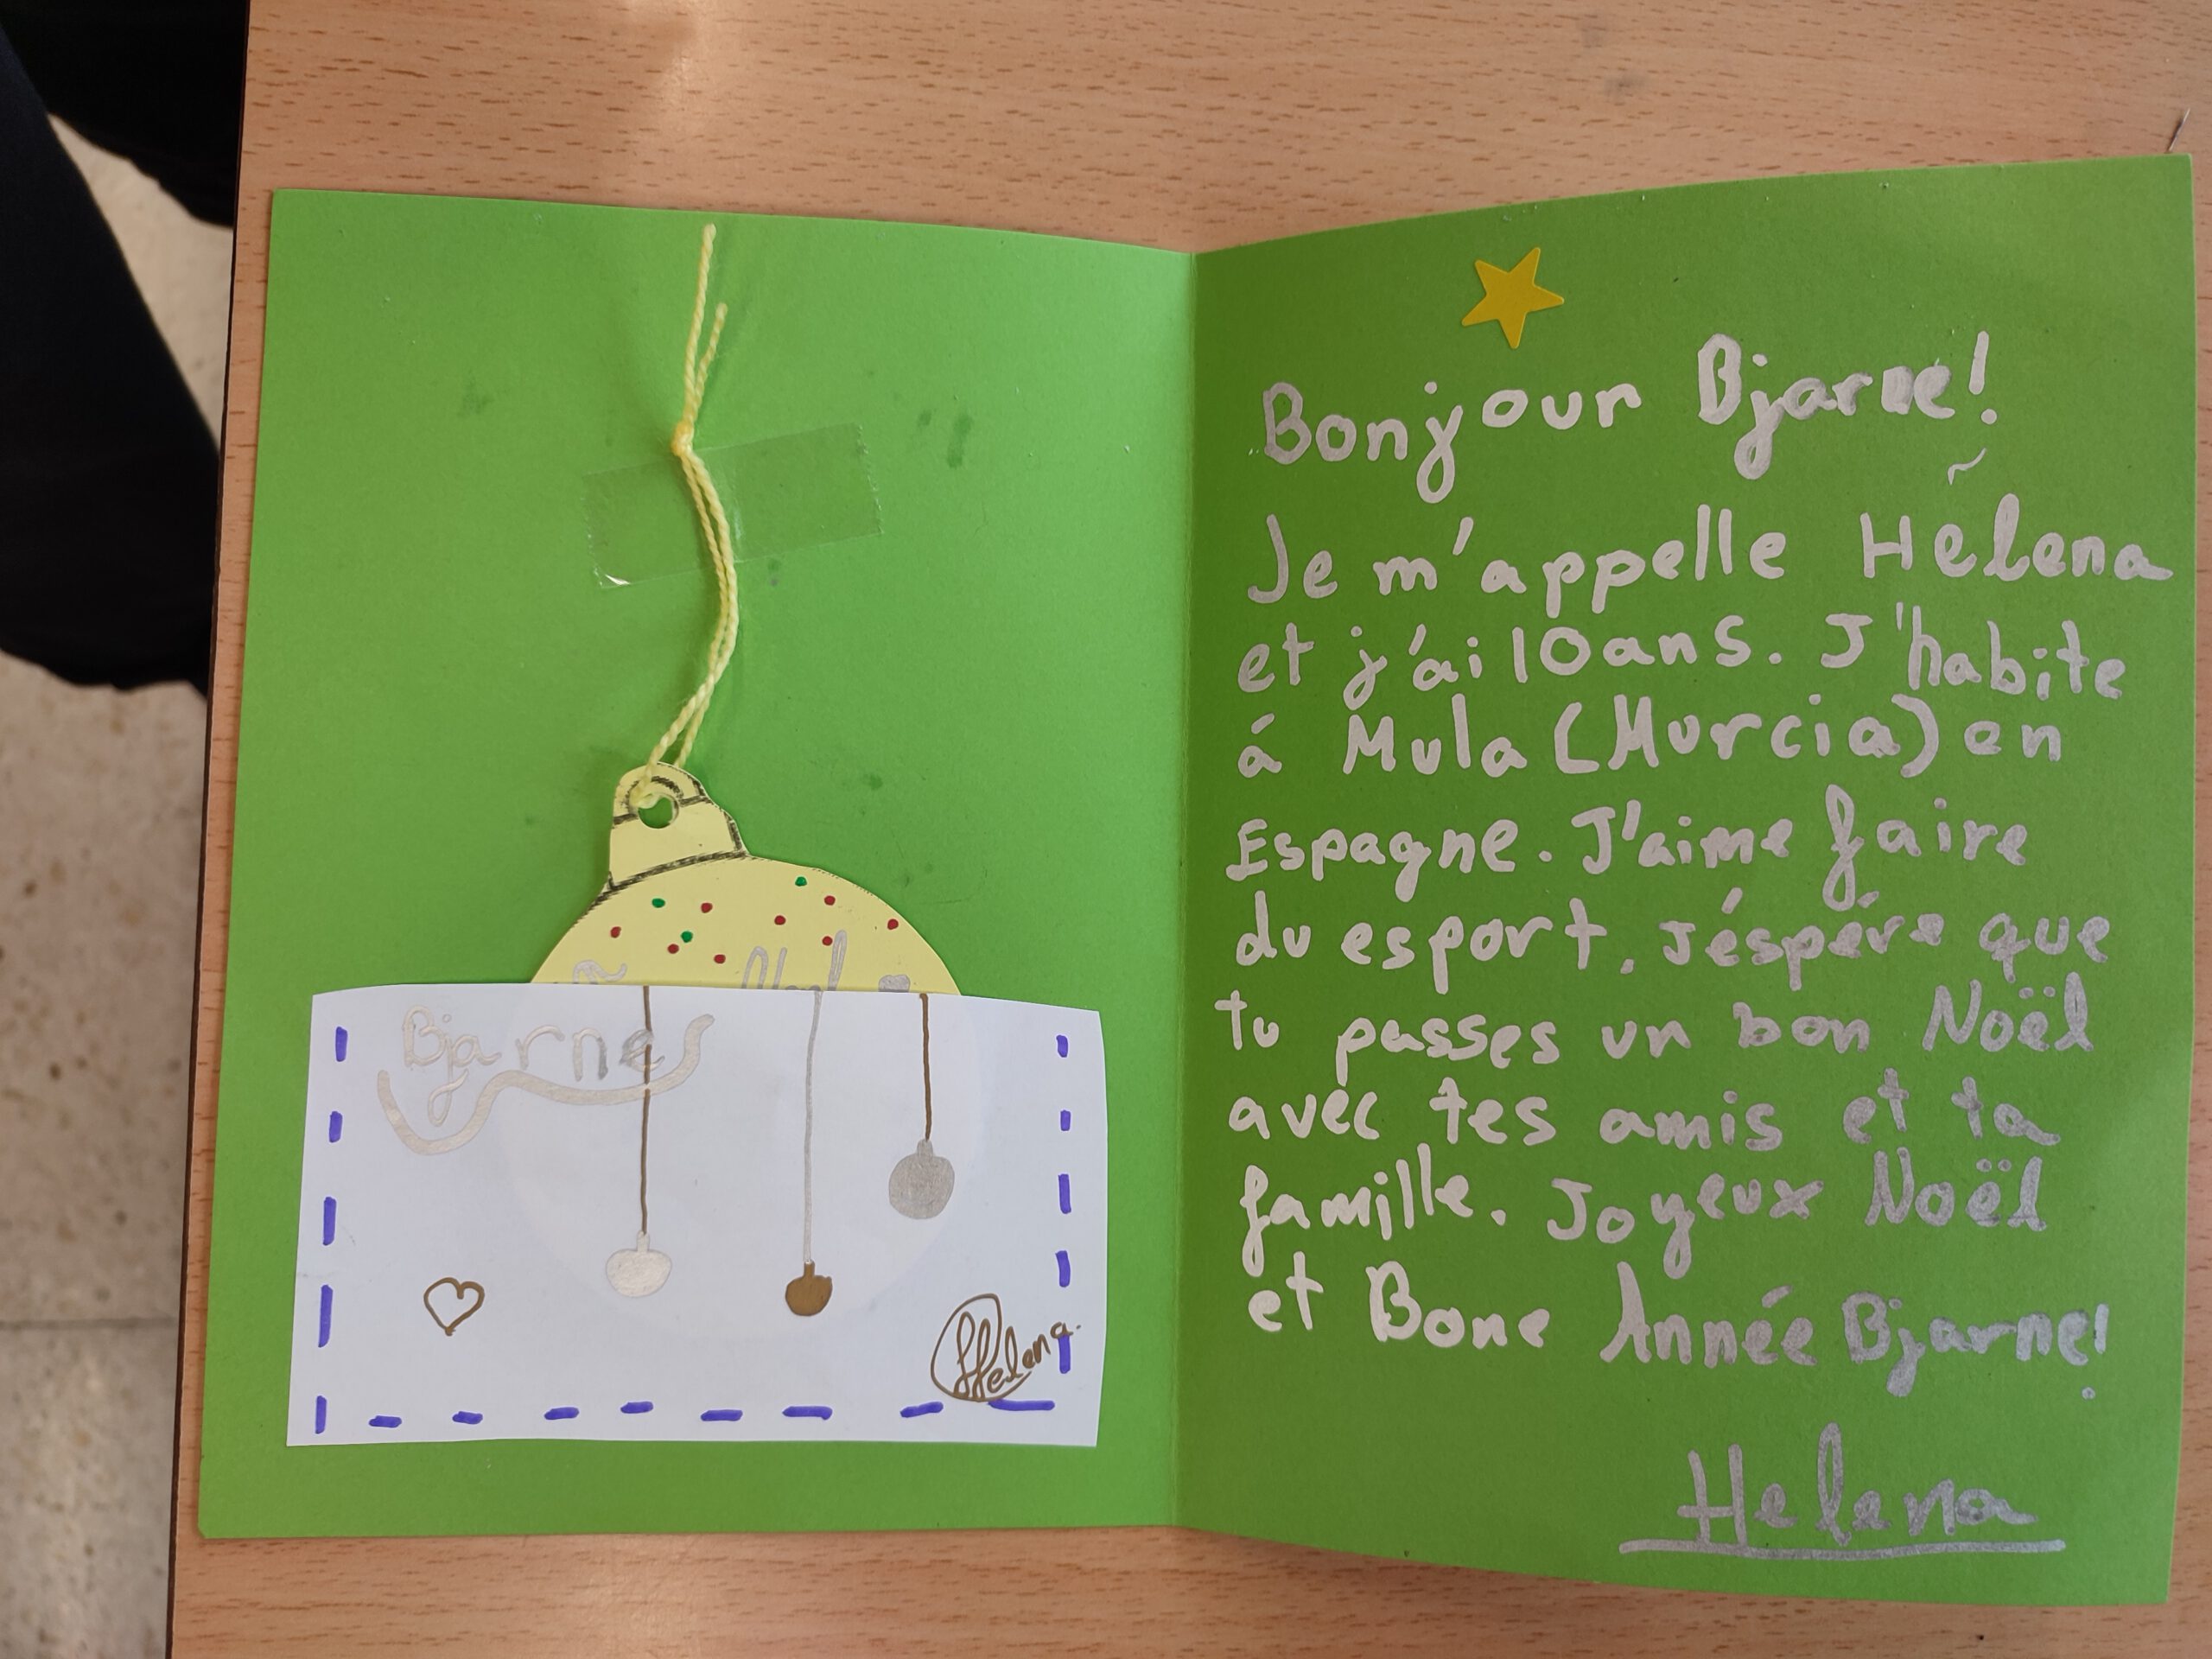 Bjarne
Helena.
Bonjour Bjarne!
Je m'appelle Hélena
et j'ai 10 ans. J'habite
á Mula (Murcia) en
Espagne. J'aime faire
du esport. J'éspére que
tu passes un bon Noël
avec tes amis et ta
famille. Joyeux Noël
et Bone Année Bjarne!
Helena